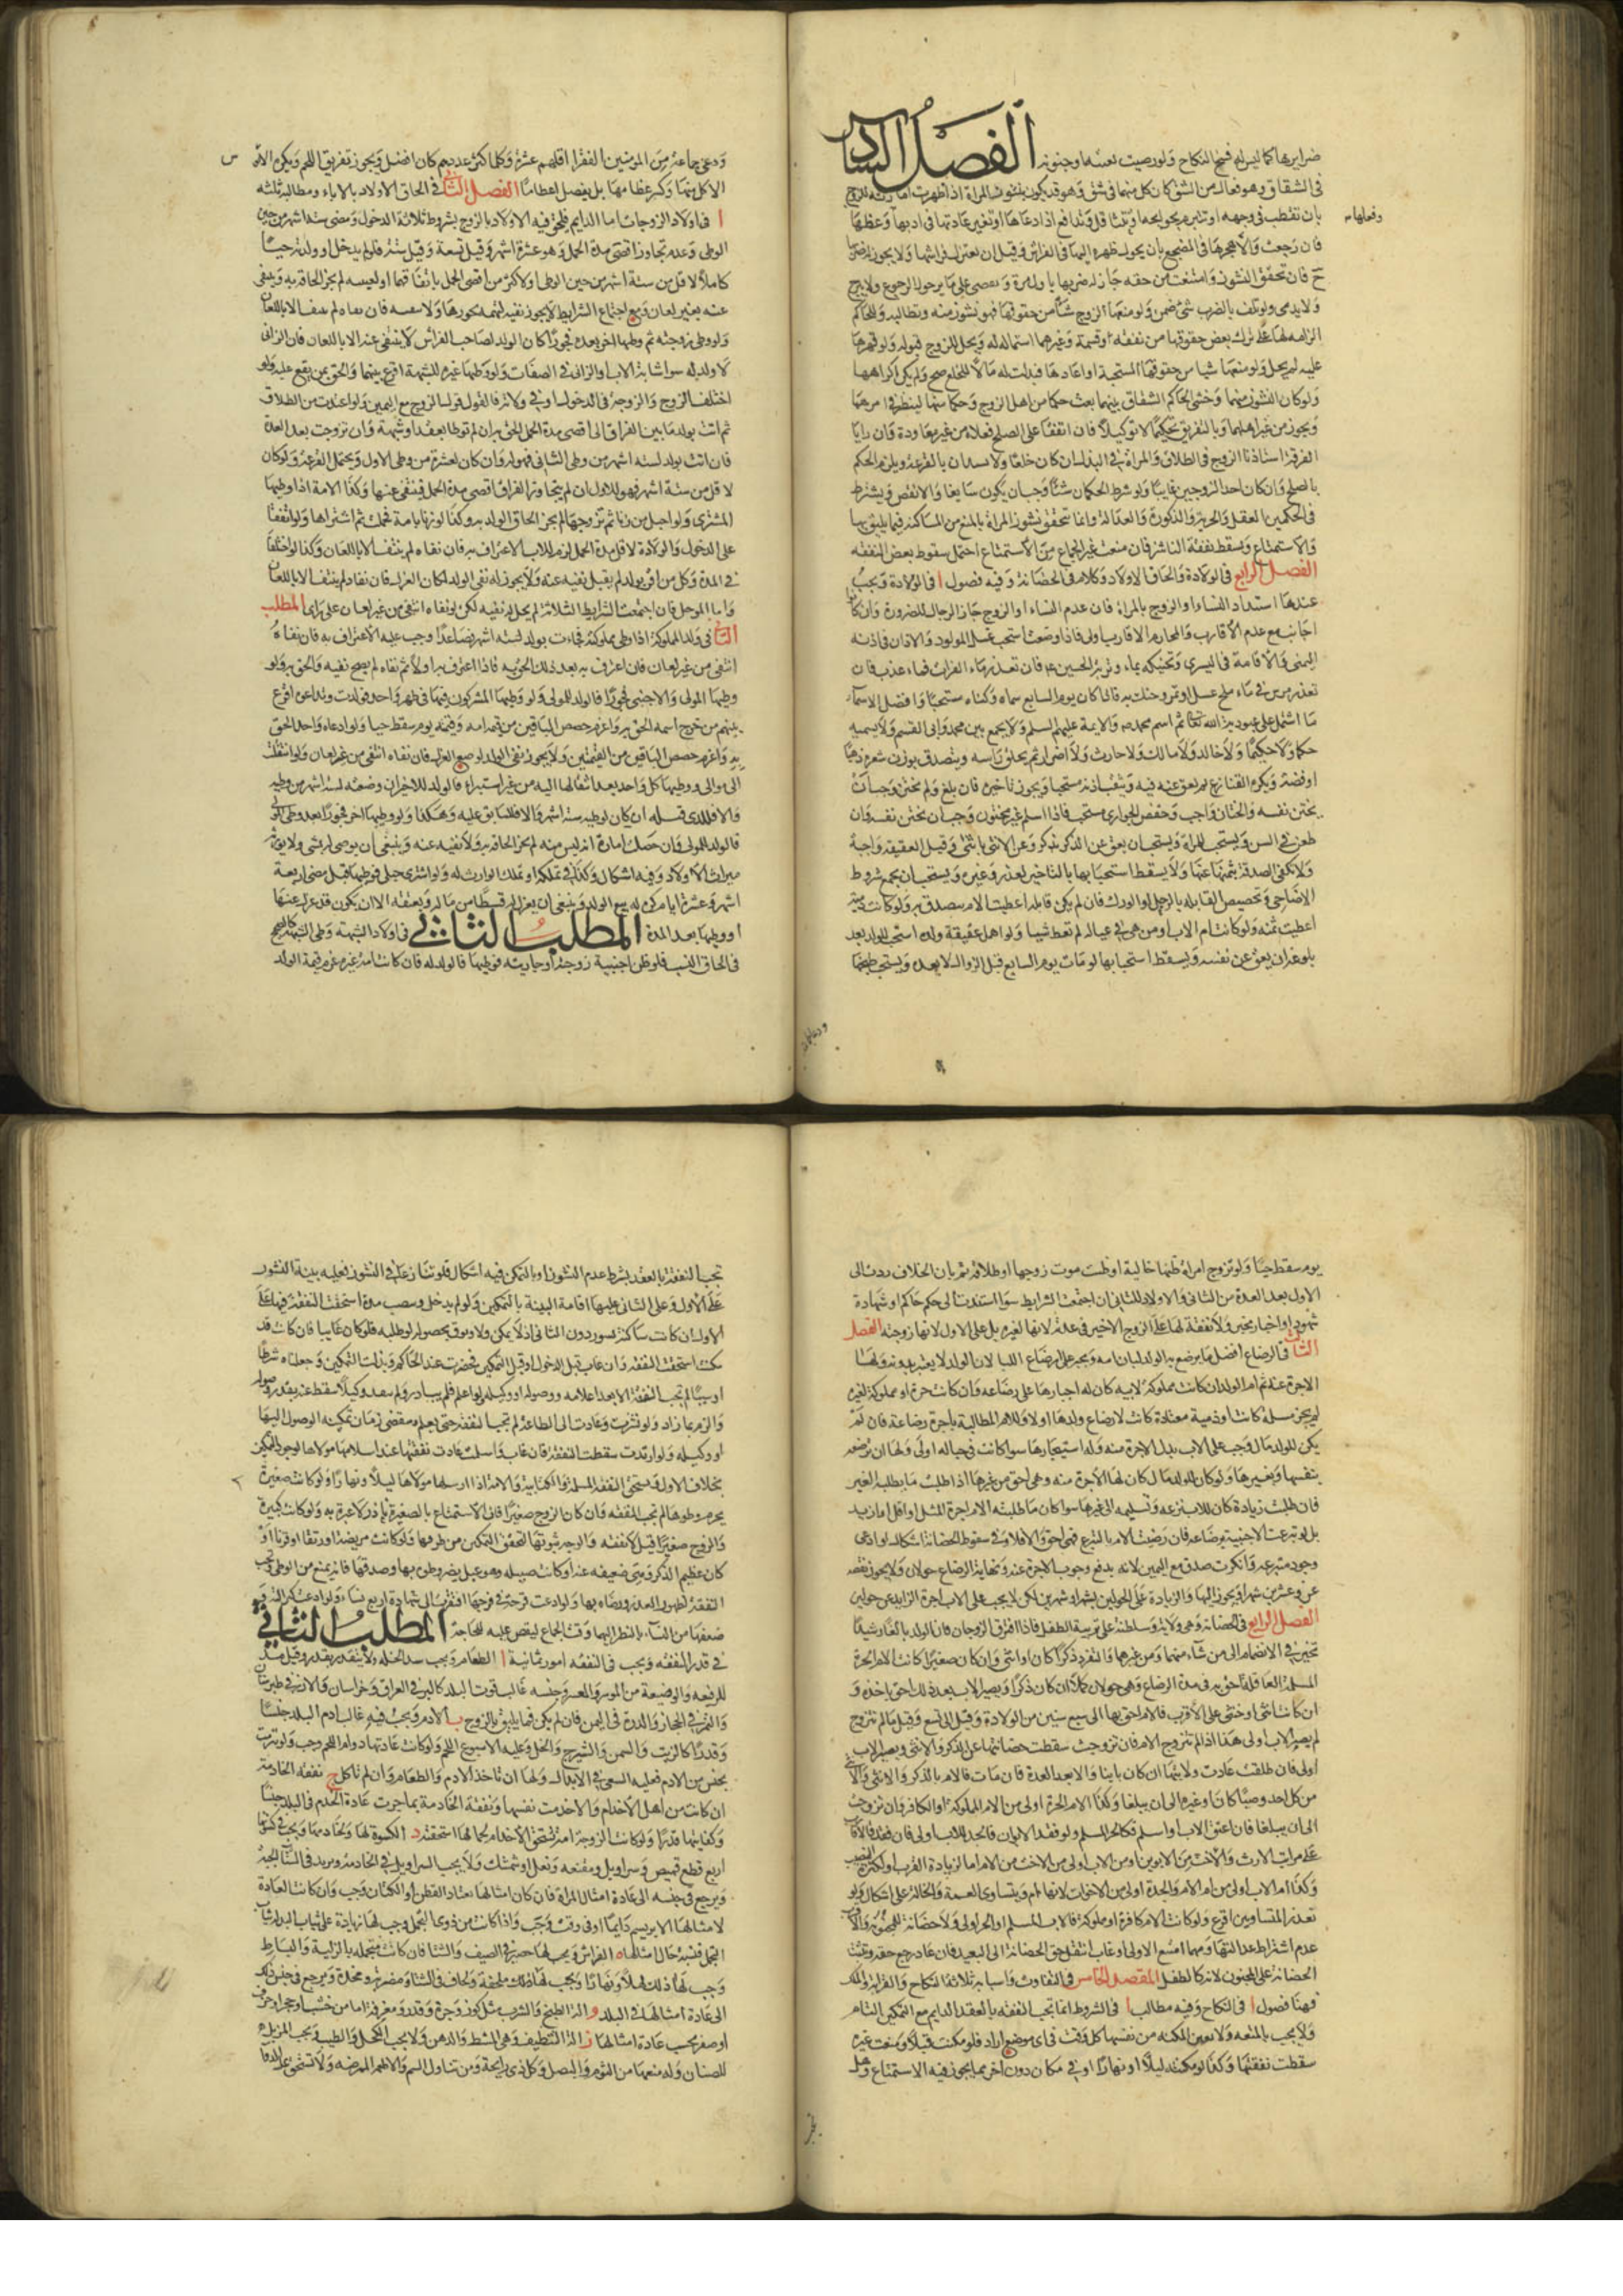 ضرايرها كما ليس له فسخ النكاح ولو رضيت لعننه او جنونه الفصل السادس
في الشقاق وهو فعال من الشق كان كل منهما في شق وهو قد يكون بنشوز المراة اذا ظهرت امارته للزوج
بان تقطب في وجهه او تتبرم بحوايجه او تتثاقل وتدافع اذا دعاها او تغير عادتها في ادبها وعظها
وفعلها
فان رجعت والا هجرها في المضجع بان يحول ظهره اليها في الفراش وقيل ان يعتزل فراشها ولا يجوز له ضربها
ح فان تحقق النشوز وامتنعت من حقه جاز له ضربها باول مرة ويقتصر على ما يرجو به الرجوع ولا يبرح
ولا يدمي ولو تلف بالضرب شئ ضمن ولو منعها الزوج شيئا من حقوقها فهو نشوز منه وتطالبه وللحاكم
الزامه ولها ترك بعض حقوقها من نفقة او قسمة وغيرهما استمالة له ويحل للزوج قبوله ولو قهرها
عليه لم يحل ولو منعها شيا من حقوقها المستحبة او اغارها فبذلت له مالا للخلع صح ولم يكن اكراها
ولو كان النشوز منهما وخشي الحاكم الشقاق بينهما بعث حكما من اهل الزوج وحكما من اهلها لينظرا في امرهما
ويجوز من غير اهلهما وبالتفريق تحكيما لا توكيلا فان اتفقا على الصلح فعلاه من غير معاودة وان رايا
الفرقة استاذنا الزوج في الطلاق والمراة في البذل ان كان خلعا ولا يستبدان بالفرقة ويلزم الحكم
بالصلح وان كان احد الزوجين غايبا ولو شرط الحكمان شيئا وجب ان يكون سايغا والا نقض ويشترط
في الحكمين العقل والحرية والذكورة والعدالة وانما يتحقق نشوز المراة بالمنع من المساكنة فيما يليق بها
والاستمتاع ويسقط نفقة الناشز فان منعت غير الجماع من الاستمتاع احتمل سقوط بعض النفقة
الفصل الرابع في الولادة والحاق الاولاد وكلام في الحضانة وفيه فصول ا في الولادة ويجب
عندها استبداد النساء او الزوج بالمراة فان عدم النساء او الزوج جاز الرجال للضرورة وان كانوا
اجانب مع عدم الاقارب والمحارم الاقارب اولى فاذا وضعت استحب غسل المولود والاذان في اذنه
اليمنى والاقامة في اليسرى وتحنيكه بماء وتربة الحسين ع فان تعذر ماء الفرات فماء عذب فان
تعذر مرس في ماء ملح عسل او تمر وحنك به فاذا كان يوم السابع سماه وكناه مستحبا وافضل الاسماء
ما اشتمل على عبودية الله تعالى ثم اسم محمد ص والايمة عليهم السلم ولا يجمع بين محمد وابي القسم ولا يسميه
حكما ولا حكيما ولا خالد ولا مالك ولا حارث ولا ضرار ثم يحلق راسه ويتصدق بوزن شعره ذهبا
او فضة ويكره القنازع ثم يعق عنه فيه وتثقب اذنه مستحبا ويجوز تاخيره فان بلغ ولم يختن وجب ان
يختن نفسه والختان واجب وخفض الجواري مستحب فاذا اسلم غير مختون وجب ان يختن نفسه وان
طعن في السن ويستحب للمراة ويستحب ان يعق عن الذكر بذكر وعن الانثى بانثى وقيل العقيقة واجبة
ولا تكفي الصدقة بثمنها عنها ولا يسقط استحبابها بالتاخير لعذر وغيره ويستحب ان يجمع شروط
الاضاحي وتخصيص القابلة بالرجل والورك فان لم يكن قابلة اعطيت الام تتصدق به ولو كانت ذمية
اعطيت ثمنه ولو كانت ام الاب او من هي في عياله لم تعط شيا ولو اهمل عقيقة ولده استحب للولد بعد
بلوغه ان يعق عن نفسه ويسقط استحبابها لو مات يوم السابع قبل الزوال لا بعده ويستحب طبخها
ودعا جماعة
ودعى جماعة من المومنين الفقرا اقلهم عشرة وكلما كثر عددهم كان افضل ويجوز تفريق اللحم ويكره للابوين
الاكل منها وكسر عظامها بل يفصل اعظامها الفصل الثاني في الحاق الاولاد بالاباء ومطالبه ثلثة
ا في اولاد الزوجات اما الدايم فيلحق فيه الاولاد بالزوج بشروط ثلاثة الدخول ومضى ستة اشهر من حين
الوطى وعدم تجاوز اقصى مدة الحمل وهو عشرة اشهر وقيل تسعة وقيل سنة فلو لم يدخل او ولدته حيا
كاملا لاقل من ستة اشهر من حين الوطى او لاكثر من اقصى الحمل باتفاقهما او لغيبته لم يجز الحاقه به وينفى
عنه بغير لعان ومع اجتماع الشرايط لا يجوز نفيه لتهمة فجورها ولا يتيقنه فان نفاه لم ينتف الا باللعان
ولو وطى زوجته ثم وطئها اخر بعده فجورا كان الولد لصاحب الفراش لا ينتفى عنه الا باللعان فان الزاني
لا ولد له سوا شابه الاب او الزاني في الصفات ولو وطئها غيره للشبهة اقرع بينهما والحق بمن يقع عليه ولو
اختلف الزوج والزوجة في الدخول او في ولادته فالقول قول الزوج مع اليمين ولو اعتدت من الطلاق
ثم اتت بولد ما بين الفراق الى اقصى مدة الحمل الحق به ان لم توطا بعقد او شبهة وان تزوجت بعد العدة
فان اتت بولد لستة اشهر من وطى الثاني فهو له وان كان لعشرة من وطى الاول ويحتمل القرعة ولو كان
لاقل من ستة اشهر فهو للاول ان لم يتجاوز الفراق اقصى مدة الحمل فينتفى عنهما وكذا الامة اذا وطيها
المشتري ولو احبل من زنا ثم تزوجها لم يجز الحاق الولد به وكذا لو زنا بامة فحملت ثم اشتراها ولو اتفقا
على الدخول والولادة لاقل مدة الحمل لزم الاب الاعتراف به فان نفاه لم ينتف الا باللعان وكذا لو اختلفا
في المدة وكل من اقر بولد لم يقبل نفيه عنه ولا يجوز له نفى الولد لمكان العزل فان نفاه لم ينتف الا باللعان
واما الموجل فان اجتمعت الشرايط الثلاثة لم يحل له نفيه لكن لو نفاه انتفى من غير لعان على راى المطلب
الثاني في ولد المملوكة اذا وطى مملوكته فجاءت بولد لستة اشهر فصاعدا وجب عليه الاعتراف به فان نفاه
انتفى من غير لعان فان اعترف به بعد ذلك الحق به فاذا اعترف به اولا ثم نفاه لم يصح نفيه والحق به ولو
وطيها المولى والاجنبى فجورا فالولد للمولى ولو وطيها المشتركون فيها في طهر واحد فولدت وتداعوه اقرع
بينهم من خرج اسمه الحق به واغرم حصص الباقين من قيمة امه وقيمته يوم سقط حيا ولو ادعاه واحد الحق
به واغرم حصص الباقين من القيمتين ولا يجوز نفى الولد لموضع العزل فان نفاه انتفى من غير لعان ولو انتقلت
الى موالى ووطيها كل واحد بعد انتقالها اليه من غير استبراء فالولد للاخير ان وضعته لستة اشهر من وطيه
والا فللذي قبله ان كان لوطيه ستة اشهر والا فللسابق عليه وهكذا ولو وطيها اخر فجورا بعد وطى المولى
فالولد للمولى وان حصلت امارة انه ليس منه لم يجز الحاقه به ولا نفيه عنه وينبغى ان يوصى له بشى ولا يورثه
ميراث الاولاد وفيه اشكال وكذا في تملكه او تملك الوارث له ولو اشترى حبلى فوطيها قبل مضى اربعة
اشهر وعشرة ايام كره له بيع الولد وينبغى ان يعزل له قسطا من ماله ويعتقه الا ان يكون قد عزل عنها
او وطيها بعد المدة المطلب الثالث في اولاد الشبهة وطى الشبهة كالصحيح
في الحاق النسب فلو ظن اجنبية زوجته او جاريته فوطيها فالولد له فان كانت امة غيره غرم قيمة الولد
يوم سقط حيا ولو تزوج امراة ظنها خالية او ظنت موت زوجها او طلاقه ثم بان الخلاف ردت الى
الاول بعد العدة من الثاني والاولاد للثاني ان اجتمعت الشرايط سوا استندت الى حكم حاكم او شهادة
شهود او اخبار مخبر ولا نفقة لها على الزوج الاخير في عدته لانها لغيره بل على الاول لانها زوجته الفصل
الثالث في الرضاع افضل ما يرضع به الولد لبان امه ويجبر على ارضاع اللبا لان الولد لا يعيش بدونه ولها
الاجرة عنه ثم ام الولد ان كانت مملوكة لابيه كان له اجبارها على رضاعه وان كانت حرة او مملوكة لغيره
لم يجز مسلمة كانت او ذمية معتادة كانت لارضاع ولدها او لا وللام المطالبة باجرة رضاعه فان لم
يكن للولد مال وجب على الاب بذل الاجرة منه وله استيجارها سوا كانت في حباله او لا ولها ان ترضعه
بنفسها وبغيرها ولو كان للولد مال كان لها الاجرة منه وهي احق من غيرها اذا طلبت ما يطلبه الغير
فان طلبت زيادة كان للاب نزعه وتسليمه الى غيرها سوا كان ما طلبته الام اجرة المثل او اقل او ازيد
بل لو تبرعت الاجنبية برضاعه فان رضيت الام بالتبرع فهي احق والا فلا وفي سقوط الحضانة اشكال ولو ادعى
وجود متبرعة وانكرت صدق مع اليمين لانه يدفع وجوب الاجرة عنه ونهاية الرضاع حولان ولا يجوز نقصه
عن وعشرين شهرا ويجوز اليها والزيادة على الحولين بشهر او شهرين لكن لا يجب على الاب اجرة الزايد عن حولين
الفصل الرابع في الحضانة وهي ولاية وسلطنة على تربية الطفل فاذا افترق الزوجان فان الولد بالغا رشيدا
تخير في الانضمام الى من شاء منهما ومن غيرهما والتفرد ذكرا كان او انثى وان كان صغيرا كانت الام الحرة
المسلمة العاقلة احق به في مدة الرضاع وهي حولان كملا ان كان ذكرا ويصير الاب بعد ذلك احق باخذه و
ان كانت انثى او خنثى على الاقرب فالام احق بها الى سبع سنين من الولادة وقيل الى تسع وقيل ما لم تتزوج
ثم يصير الاب اولى هذا اذا لم تتزوج الام فان تزوجت سقطت حضانتها عن الذكر والانثى ويصير الاب
اولى فان طلقت عادت ولايتها ان كان باينا والا بعد العدة فان مات فالام بالذكر والانثى والاب
من كل احد وصيا كان او غيره الى ان يبلغا وكذا الام الحرة اولى من الاب المملوك او الكافر وان تزوجت
الى ان يبلغا فان اعتق الاب او اسلم فكالحر المسلم ولو فقد الابوان فالجد للاب اولى فان فقد فالاقارب
على مراتب الارث والاخت من الابوين او من الاب اولى من الاخت من الام اما لزيادة القرب او لكثرة النصيب
وكذا ام الاب اولى من ام الام والجدة اولى من الاخوات لانها ام ويتساوى العمة والخالة على اشكال ولو
تعذر المتساوين اقرع ولو كانت الام كافرة او مملوكة فالاب المسلم او الحر اولى ولا حضانة للمجنونة والاقرب
عدم اشتراط عدالتها ومهما امتنع الاولى او غاب انتقل حق الحضانة الى البعيد فان عاد رجع حقه وتثبت
الحضانة على المجنون لانه كالطفل المقصد الخامس في النفقات واسبابها ثلاثة النكاح والقرابة والملك
فهنا فصول ا في النكاح وفيه مطالب ا في الشروط انما تجب النفقة بالعقد الدايم مع التمكين التام
ولا يجب بالمتعة ولا بعين المكنه من نفسها كل وقت في اى موضع اراد فلو مكنت قبلا ومنعت غيره
سقطت نفقتها وكذا لو مكنته ليلا او نهارا او في مكان دون اخر مما يجوز فيه الاستمتاع وهل
تجب النفقة بالعقد بشرط عدم النشوز او بالتمكين فيه اشكال فلو تنازعا في النشوز فعليه بينة النشوز
على الاول وعلى الثاني عليها اقامة البينة بالتمكين ولو لم يدخل ومضت مدة استحقت النفقة فيها على
الاول ان كانت ساكنة دون الثاني اذ لا تمكين ولا وثوق بحصوله لو طلبه فلو كان غايبا فان كانت قد
مكنت استحقت النفقة وان غاب قبل الدخول او قبل التمكين فحضرت عند الحاكم وبذلت التمكين وجعلناه شرطا
او سببا لم تجب النفقة الا بعد اعلامه ووصوله او وكيله ولو اعلم فلم يبادر ولم ينفذ وكيلا سقط عنه بقدر وصوله
والزم بما زاد ولو نشزت وعادت الى الطاعة لم تجب النفقة حتى يعلم ومقضى زمان يمكنه الوصول اليها
او وكيله ولو ارتدت سقطت النفقة فان غاب واسلمت عادت نفقتها عند اسلامها
بخلاف الاول وتستحق النفقة المسلمة والكتابية والامة اذا ارسلها مولاها ليلا ونهارا ولو كانت صغيرة
يحرم وطوها لم تجب النفقة وان كان الزوج صغيرا فان الاستمتاع بالصغيرة نادر لا عبرة به ولو كانت كبيرة
والزوج صغيرا قيل لا نفقة والوجه ثبوتها لتحقق التمكين من طرفها ولو كانت مريضة او رتقا او قرنا او
كان عظيم الذكر وهي ضعيفة عنه او كانت صبية يضر وطئ بها وصدقها فانه يمنع من الوطى وتجب
النفقة لظهور العذر ورضاه بها ولو ادعت قرحة في فرجها افتقرت الى شهادة اربع نساء ولو ادعت كبر الته و
ضعفها من النساء بالنظر اليهما وقت الجماع ليقض عليه للحاجة المطلب الثاني
في قدر النفقة ويجب في النفقة امور ثمانية ا الطعام ويجب سد الخلة ولا يتقدر بقدر وقيل مد
للرفيعة والوضيعة من الموسر والمعسر وجنسه غالب قوت البلد كالبر في العراق وخراسان والارز في طبرستان
والتمر في الحجاز والذرة في اليمن فان لم يكن فما يليق بالزوج ب الادم ويجب فيه غالب ادم البلد جنسا
وقدرا كالزيت والسمن والشيرج والخل وعليه الاسبوع اللحم ولو كانت عادتها دوام اللحم وجب ولو تبرمت
بجنس من الادم فعليه السعى في الابدال ولها ان تاخذ الادم والطعام وان لم تاكل ج نفقة الخادمة
ان كانت من اهل الاخدام والا خدمت نفسها ونفقة الخادمة بما جرت عادة الخدم في البلد جنسا
وكفايتها قدرا ولو كانت الزوجة امة تستحق الاخدام لجمالها استحقته د الكسوة لها ولخادمها ويجب في كسوتها
اربع قطع قميص وسراويل ومقنعة ونعل او شمشك ولا يجب السراويل في الخادمة ويزيد في الشتا الجبة
ويرجع في جنسه الى عادة امثال المراة فان كان امثالها يعتاد القطن او الكتان وجب وان كانت العادة
لامثالها الابريسم دايما او في وقت وجب واذا كانت من ذوي التجمل وجب لها زيادة على ثياب البدلة ثياب
التجمل بنسبة حال امثالها ه الفراش ويجب لها حصير في الصيف والشتا فان كانت متجملة بالزلية والبساط
وجب لها ذلك ليلا ونهارا ويجب لها ذلك ملحفة ولحاف في الشتا ومضربة ومخدة ويرجع في جنس ذلك
الى عادة امثالها في البلد و الة الطبخ والشرب مثل كوز وجرة وقدر ومغرفة اما من خشب او حجر او خزف
او صفر بحسب عادة امثالها ز الة التنظيف وهي المشط والدهن ولا يجب الكحل والطيب ويجب المزيل
للصنان وله منعها من الثوم والبصل وكل ذي رايحة ومن تناول السم والاطعمة الممرضة ولا تستحق عليه الدواء